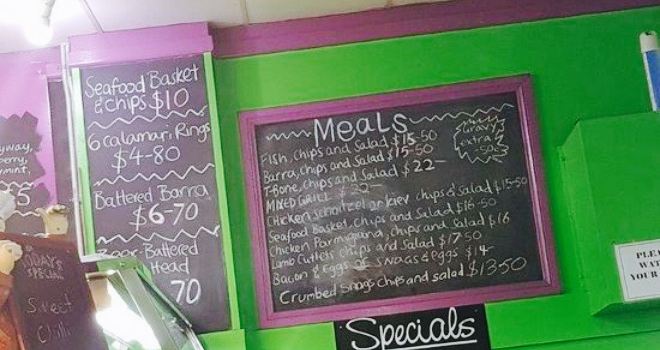 Seafood Basket
& Chips $10
6 Calamari Rings
$4-80
Battered Barra
$6-70
Beer-Battered
Head
70
Meals
Gravy
extra
-50
Fish, chips and Salad $15-50
Barra, chips and Salad $15-50
T-Bone, chips and Salad $22-
MIXED GRILL $22-
Chicken schnitzel or kiev chips & Salad $15-50
Seafood Basket, Chips and Salad $16-50
Chicken Parmigiana, chips and Salad $16
Lamb Cutlets chips and Salad $17-50
Bacon & Eggs OR SNAGS & Eggs $14-
Crumbed Snags chips and salad $13-50
Specials
TODAY'S
SPECIAL
Sweet
Chilli
$5
YOUR